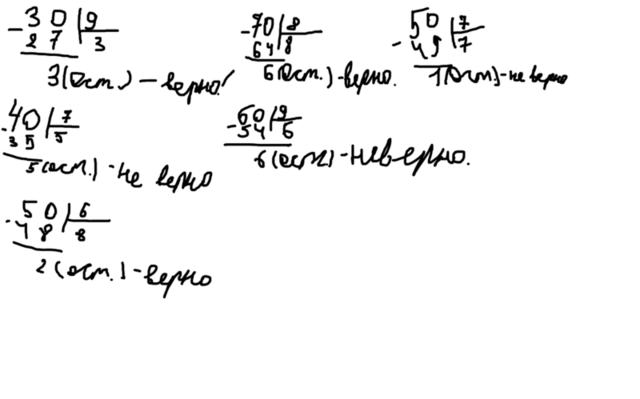 -30|9
27 3
3(Ост.) - верно!
-70|8
64 8
6(Ост.) - верно.
-50|7
49 7
1(Ост.) - не верно
-40|7
35 5
5(ост.) - не верно
-60|9
54 6
6(ост.) - неверно.
-50|6
48 8
2(ост.) - верно